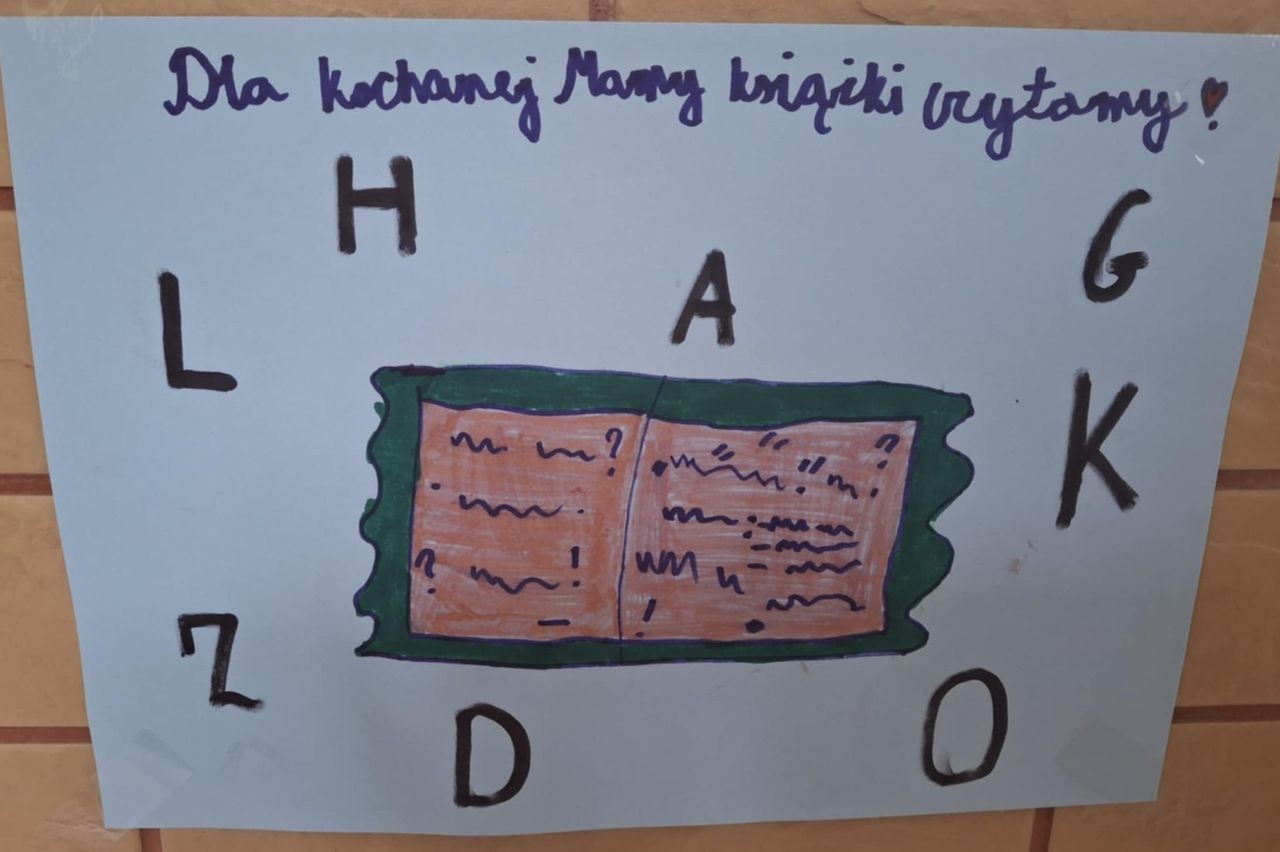 Dla kochanej Mamy książki czytamy!
H
G
A
L
K
Z
D
O